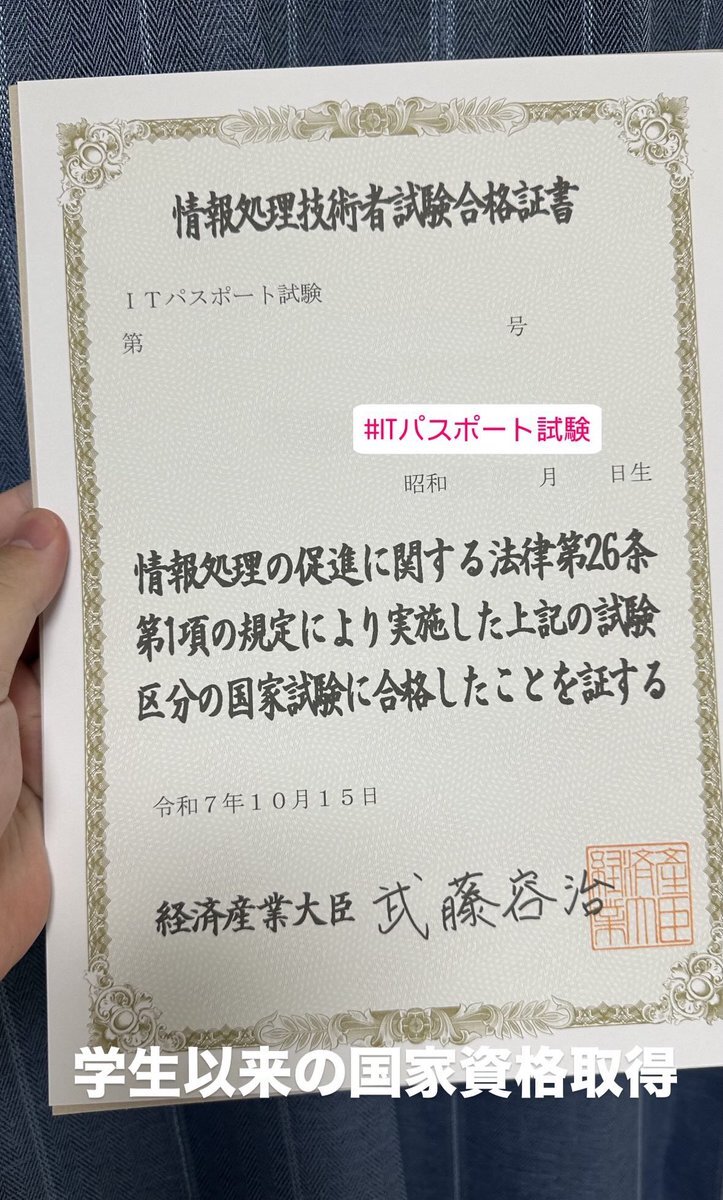 情報処理技術者試験合格証書
ＩＴパスポート試験
第　　　号
#ITパスポート試験
昭和　　　月　　日生
情報処理の促進に関する法律第26条
第1項の規定により実施した上記の試験
区分の国家試験に合格したことを証する
令和７年１０月１５日
経済産業大臣 武藤容治
経済産業大臣
学生以来の国家資格取得